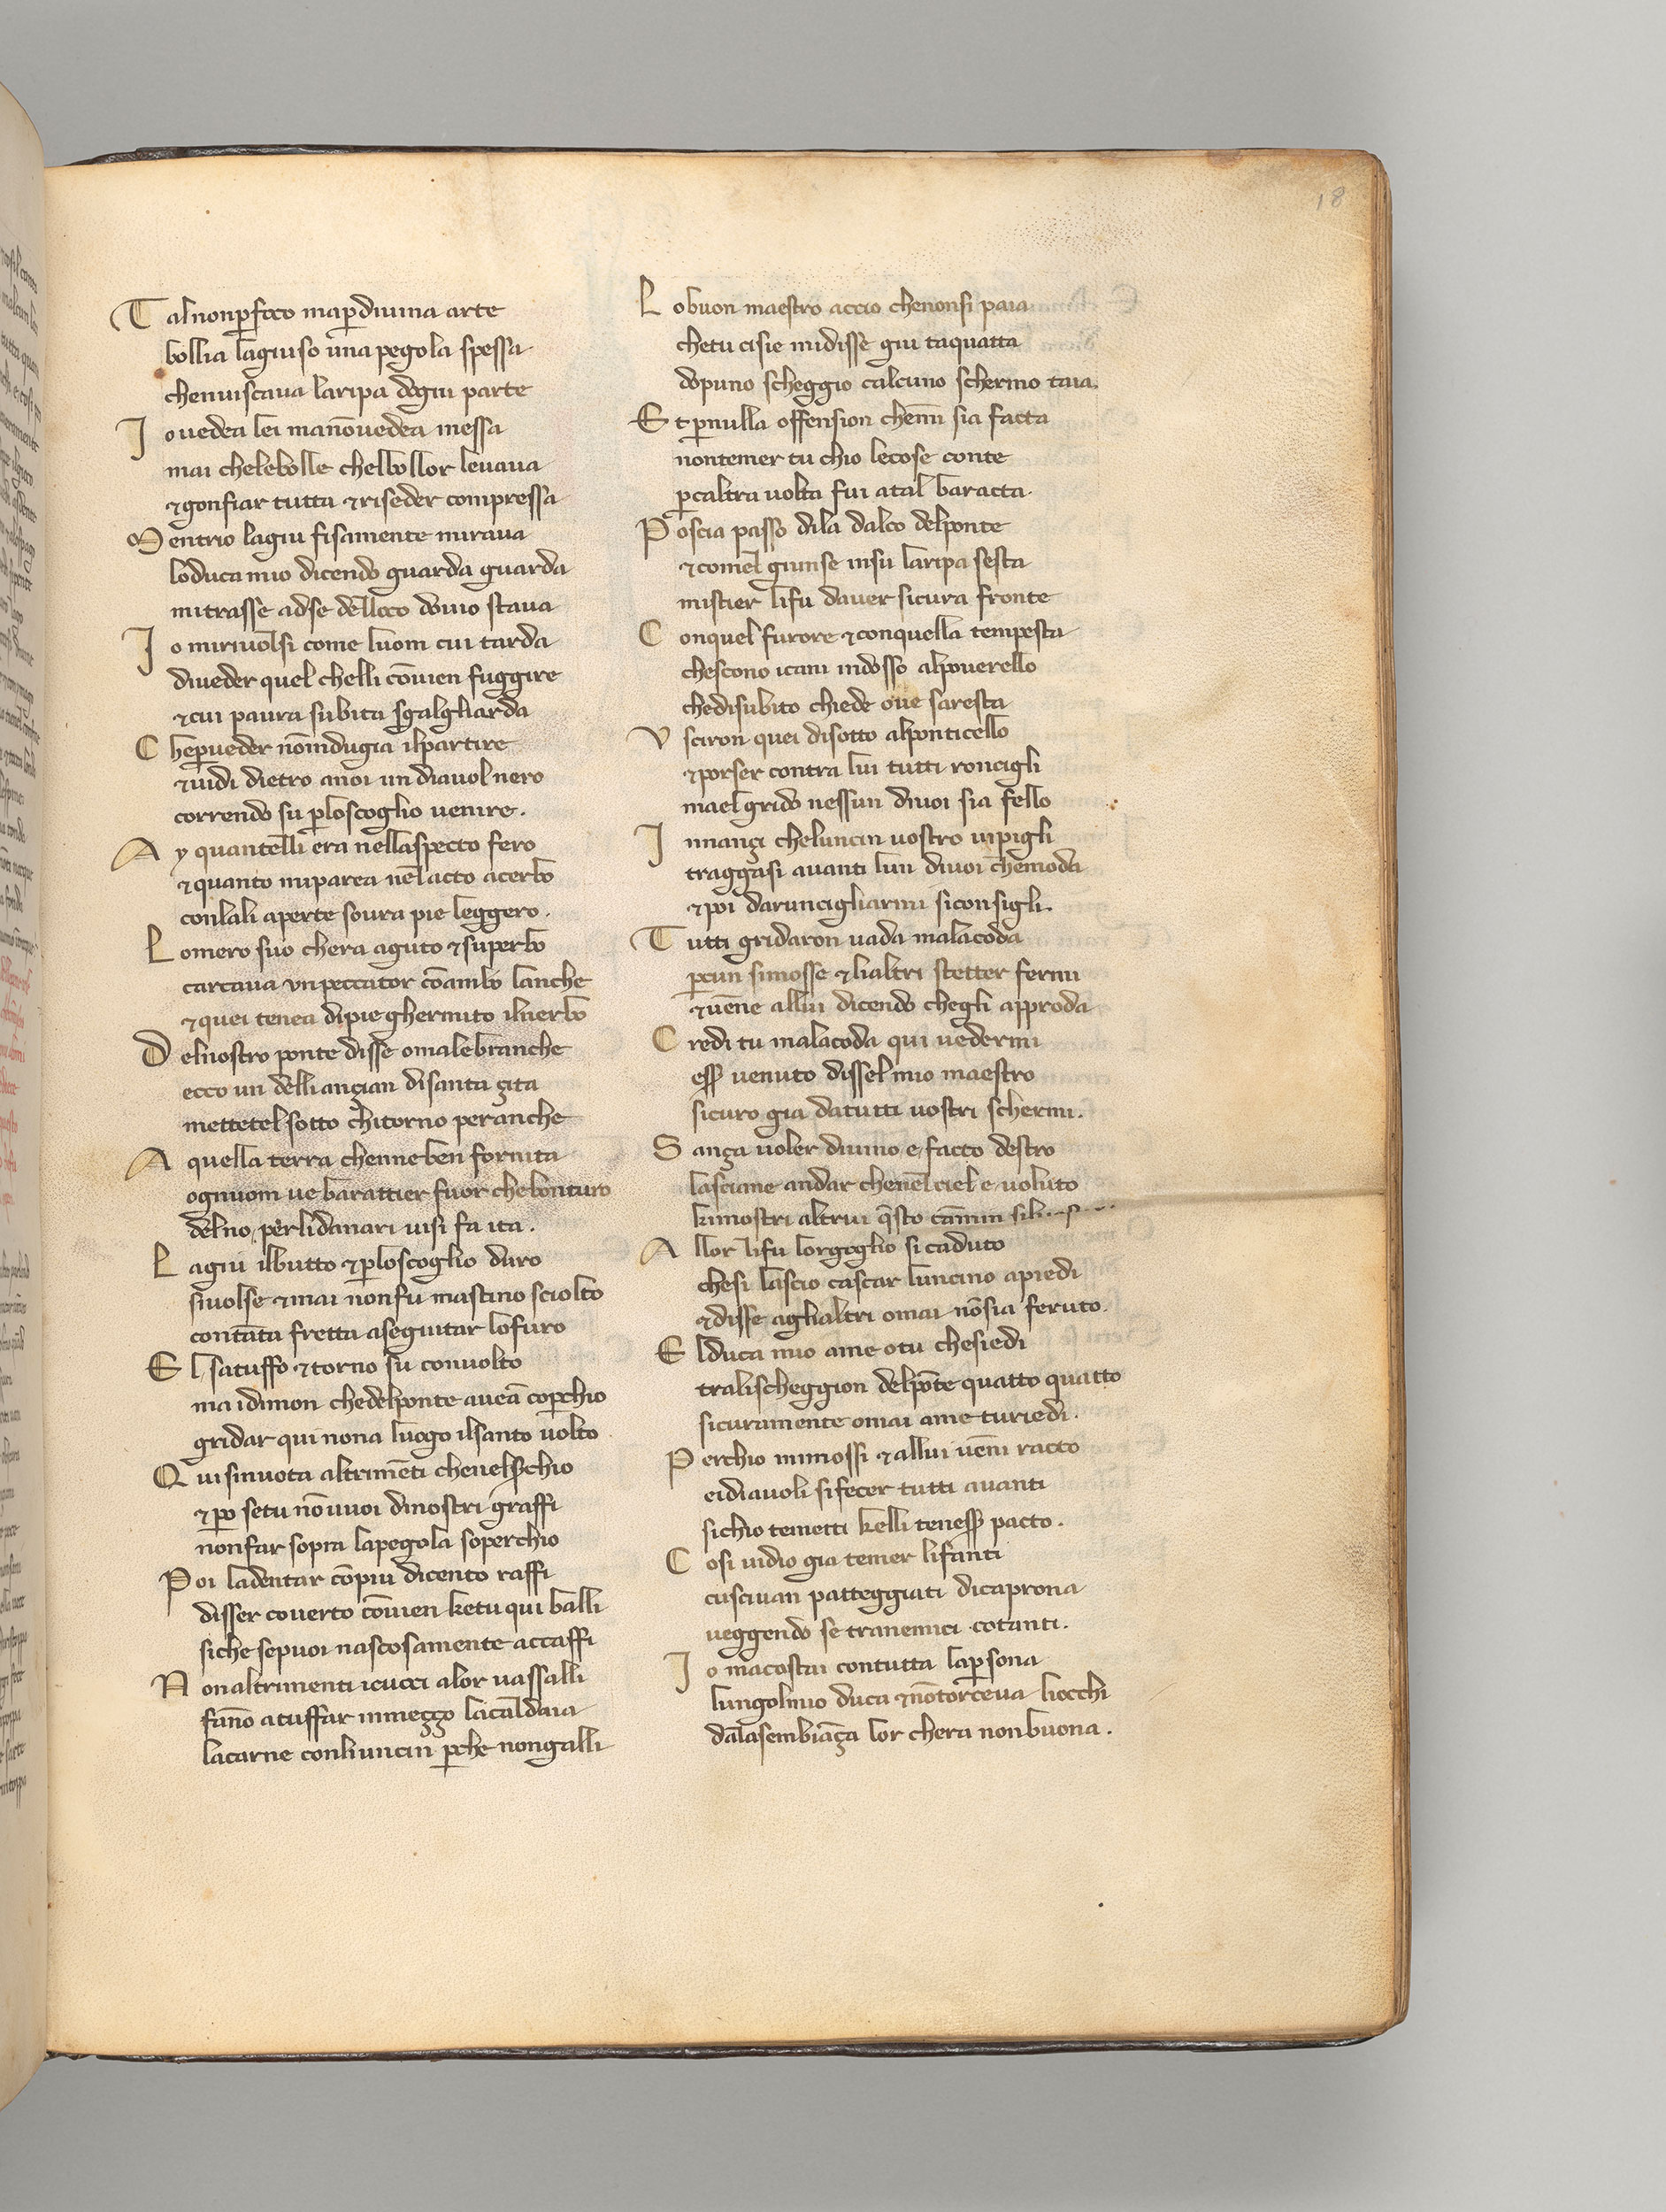 18
Tal non ꝑ foco ma ꝑ diuina arte
bollia lagiuso una pegola spessa
chenuiscaua laripa dogni parte
Io uedea lei ma nō uedea inessa
mai chelebolle chelbollor leuaua
⁊ gonfiar tutta ⁊ riseder compressa
Mentrio lagiu fisamente miraua
loduca mio dicendo guarda guarda
mitrasse adse delloco douio staua
Io miriuolsi come luom cui tarda
diueder quel chelli cōuien fuggire
⁊ cui paura subita sgalgliarda
Cheꝑ ueder nōindugia ilpartire
⁊ uidi dietro anoi un diauol nero
correndo su ꝑ loscoglio uenire.
Ay quantelli era nellaspecto fero
⁊ quanto miparea nel acto acerbo
conlali aperte soura pie leggero.
Lomero suo chera aguto ⁊ superbo
carcaua vn peccator cōambo lanche
⁊ quei tenea dipie ghermito ilnerbo
Delnostro ponte disse omalebranche
ecco un delli ançian disanta çita
mettetel sotto chitorno peranche
Aquella terra chenneben fornita
ognuom ue barattier fuor chebonturo
delno, perlidanari uisi fa ita.
Lagiu ilbutto ⁊ ꝑ loscoglio duro
siuolse ⁊ mai nonfu mastino sciolto
contanta fretta aseguitar lofuro
El satuffo ⁊ torno su conuolto
ma idimon chedelponte aueā coꝑchio
gridar qui nona luogo ilsanto uolto
Qui sinuota altrimēti chenelẜchio
⁊ ꝑo setu nōuuoi dinostri graffi
nonfar sopra lapegola soperchio
Poi ladentar cōpiu dicento raffi
disser couerto cōuien ketu qui balli
siche sepuoi nascosamente accaffi
Non altrimenti icuoci alor uassalli
fānno atuffar inmeçço lacaldaia
lacarne conliuncin ꝑche nongalli
Lobuon maestro accio chenonsi paia
chetu cisie midisse giu taquatta
dopuno scheggio calcuno schermo taia.
Et ꝑ nulla offension chemī sia facta
nontemer tu chio lecose conte
ꝑcaltra uolta fui atal baracta.
Poscia passo dila dalco delponte
⁊ comel giunse insu laripa sesta
mistier lifu dauer sicura fronte
Conquel furore ⁊ conquella tempesta
chescono icani indosso alpouerello
chedisubito chiede oue saresta
Vsciron quei disotto alponticello
⁊ porser contra lui tutti roncigli
mael grido nessun diuoi sia fello
Innançi cheluncin uostro mipigli
traggasi auanti lun diuoi chemoda
⁊ poi daruncigliarmi siconsigli.
Tutti gridaron uada malacoda
ꝑcun simosse ⁊ lialtri stetter fermi
⁊ uēne allui dicendo chegli approda
Credi tu malacoda qui uedermi
esẜ uenuto dissel mio maestro
sicuro gia datutti uostri schermi.
Sança uoler diuino e, facto destro
lasciane andar chenel ciel e, uoluto
kimostri altrui q̄sto cāmin
Allor lifu lorgoglio si caduto
chesi lascio cascar luncino apiedi
⁊ disse aglialtri omai nōsia feruto.
El duca mio ame otu chesiedi
tralischeggion delpōte quatto quatto
sicuramente omai ame turiedi.
Perchio mimossi ⁊ allui uēni racto
eidiauoli sifecer tutti auanti
sichio temetti kelli tenesẜ pacto.
Cosi uidio gia temer lifanti
cusciuan patteggiati dicaprona
ueggendo se tranemici cotanti.
Io macostai contutta laꝑsona
lungolmio duca ⁊ nōtorceua liocchi
dalasembiāça lor chera nonbuona.